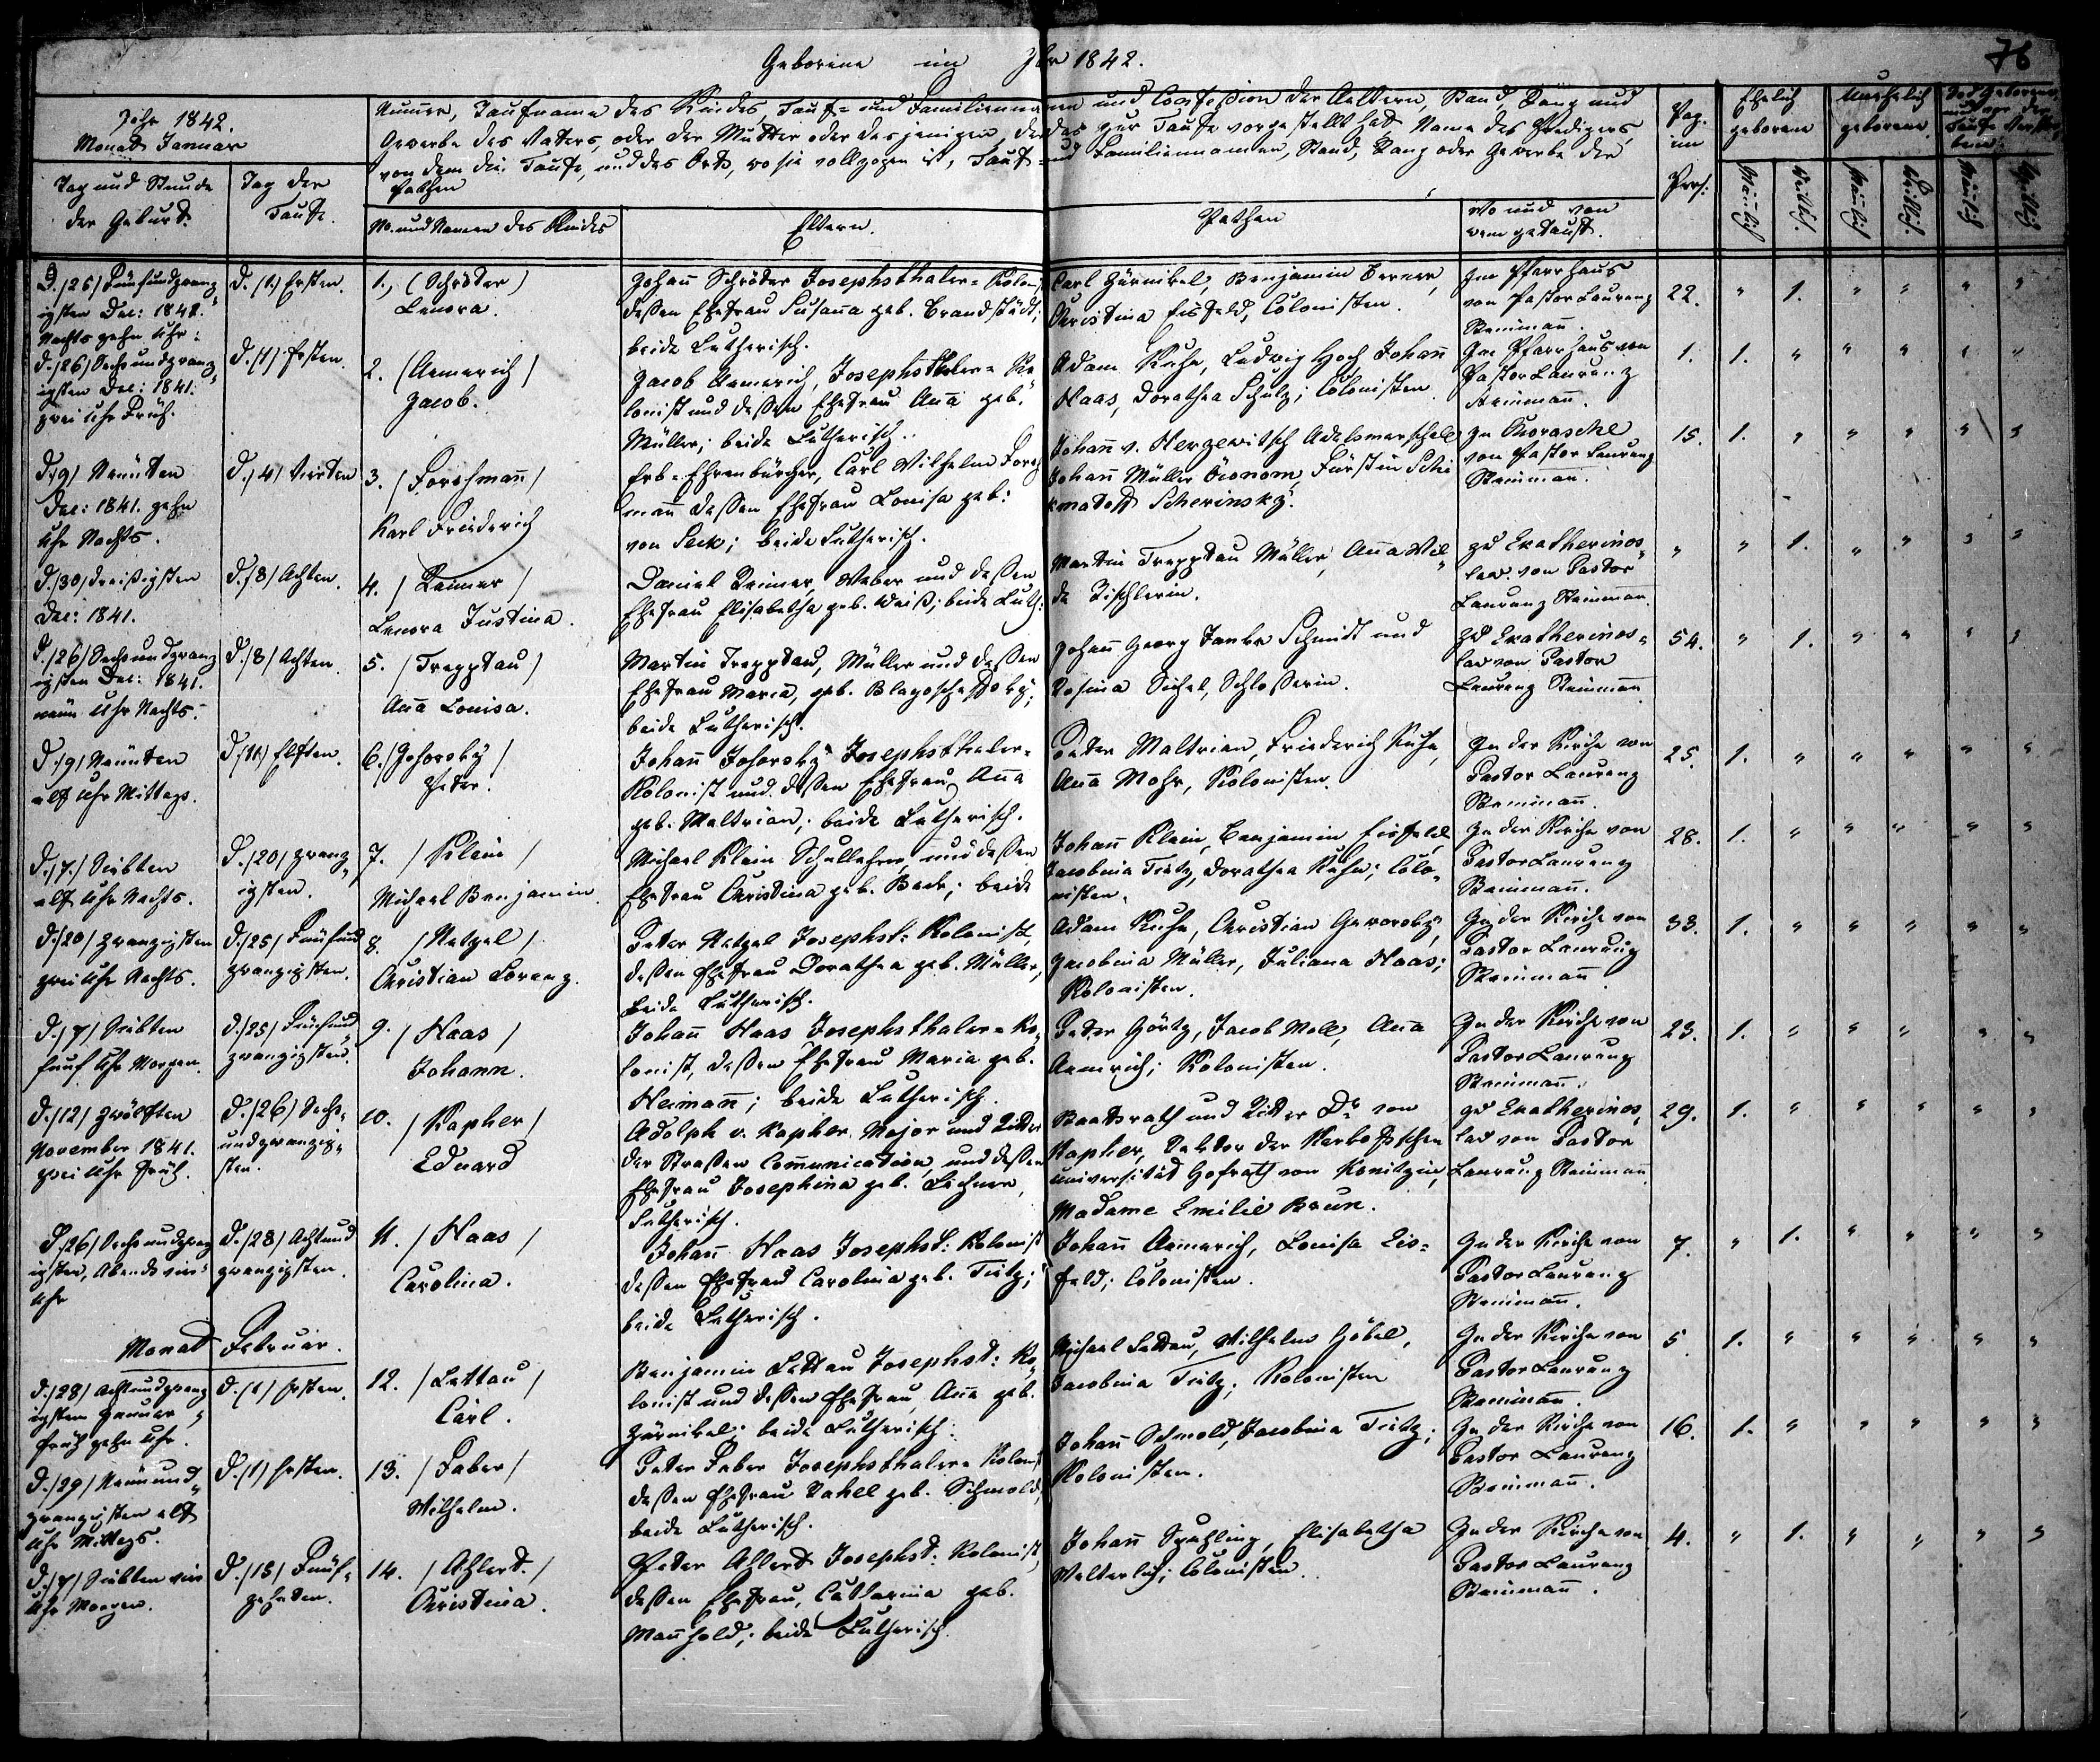 Geborene im Jahr 1842.
76
Jahr 1842.
Monat Januar
Tag und Stunde
der Geburt.
Tag der
Taufe.
Numer, Taufname des Kindes, Tauf- und Familiennamen und Confession der Aeltern, Stand, Rang und
Gewerbe des Vaters, oder der Mutter oder desjenigen, der das zur Taufe vorgestellt hat, Name des Predigers,
von dem die Taufe, und des Orts, wo sie vollzogen ist, Tauf- und Familiennamen, Stand, Rang oder Gewerbe der
Pathen
No. und Namen des Kindes
Eltern.
Pathen
Wo und von
wem getauft.
Pag.
im
Pers:
Ehelich
geborene
Unehelich
geborene
Todtgeborene
und vor der
Taufe Verstor
bene.
Mänlich
Weibl.
Mänlich
Weibl.
Mänlich
Weiblich
D. /25/ Fünfundzwanz
igsten Dec: 1841.
Nachts zehn Uhr.
D. (1) Ersten.
1., (Schröder)
Lenora.
Johañ Schröder Josephsthaler- Kolonist
dessen Ehefrau Susaña geb. Brandstädt;
beide Lutherisch.
Carl Zürnikel, Benjamin Berner,
Christina Eisfeld, Colonisten.
Im Pfarrhaus
von Pastor Laurenz
Steinmañ.
22. " 1. " " " "
d. /26/ Sechsundzwanz
igsten Dec: 1841.
zwei Uhr Früh.
D. (1) Ersten.
2. (Aemerich)
Jacob.
Jacob Aemerich, Josephsthaler- Ko
lonist und dessen Ehefrau Aña geb.
Müller; beide Lutherisch.
Adam Kuhn, Ludwig Hoch, Johañ
Haas, Dorathea Schulz; Colonisten.
Im Pfarrhaus von
Pastor Laurenz
Steinmañ.
1. 1. " " " " "
D. /9/ Neunten
Dec: 1841. zehn
Uhr Nachts.
D. /4/ Vierten
3. /Forschmañ/
Karl Friederich
Erb-Ehrenbürger, Carl Wilhelm Forsch
mañ dessen Ehefrau Louisa geb:
von Seck; beide Lutherisch.
Johañ v. Herzewitsch Adelsmarschall
Johañ Müller Öconom, Fürstin Schi
kmatoff Scherinsky.
zu Chorasche
von Pastor Laurenz
Steinmañ.
15. 1. " " " " "
D. /30/ dreißigsten
Dec: 1841.
D. /8/ Achten.
4. /Reimer/
Lenora Justina.
Daniel Reimer, Weber und dessen
Ehefrau Elisabetha geb. Weiß; beide Luth:
Martin Trepptau Müller, Aña Wel
de Tischlerin.
zu Ekatherinos
law. von Pastor
Laurenz Steinmañ.
" " 1. " " " "
D. /26/ Sechsundzwanz
igsten Dec: 1841.
neun Uhr Nachts.
D. /8/ Achten.
5. /Trepptau/
Aña Louisa.
Martin Trepptau, Müller und dessen
Ehefrau Maria, geb. Blagoschestoky;
beide Lutherisch.
Johañ Georg Janke Schmidt und
Rosina Sichel, Schlosserin.
zu Ekatherinos-
law von Pastor
Laurenz Steinmañ
54. " 1. " " " "
D. /9/ Neunten
elf Uhr Mittags.
D. /11/ Elften.
6. /Johorsky/
Peter.
Johañ Johorsky Josephsthaler-
Kolonist und dessen Ehefrau Aña
geb. Maltrian; beide Lutherisch.
Peter Maltrian, Friederich Kuhn,
Aña Mohr, Kolonisten.
In der Kirche von
Pastor Laurenz
Steinmañ.
25. 1. " " " " "
D. /7/ Siebten
elf Uhr Nachts.
D. /20/ zwanz
igsten.
7. /Klein/
Michael Benjamin.
Michael Klein Schullehrer und dessen
Ehefrau Christina geb. Beck; beide
Johañ Klein, Benjamin Eisfeld
Jacobina Tietz, Dorathea Kuhn; Colo-
nisten.
In der Kirche von
Pastor Laurenz
Steinmañ.
28. 1. " " " " "
d. /20/ zwanzigsten
zwei Uhr Nachts.
D. /25/ Fünfund
zwanzigsten.
8. /Netzel/
Christian Lorenz.
Peter Netzel Josephst: Kolonist,
dessen Ehefrau Dorathea geb. Müller,
beide Lutherisch.
Adam Kuhn, Christian Geworsky,
Jacobina Müller, Juliana Haas;
Kolonisten.
In der Kirche von
Pastor Laurenz
Steinmañ
33. 1. " " " " "
D. /7/ Siebten
fünf Uhr Morgen.
D. /25/ Fünfund
zwanzigsten.
9. /Haas/
Johann.
Johañ Haas Josephsthaler- Ko
lonist, dessen Ehefrau Maria geb.
Heimañ; beide Lutherisch.
Peter Görtz, Jacob Moll, Aña
Aemrich; Kolonisten.
In der Kirche von
Pastor Laurenz
Steinmañ.
23. 1. " " " " "
D. /12/ zwölften
November 1841.
zwei Uhr Früh.
D. /26/ Sechs-
undzwanzig-
sten.
10. /Kapher/
Eduard
Adolph v. Kapher Major und Ritter
der Straßen Comunication, und dessen
Ehefrau Josephina geb. Lechner,
Lutherisch.
Staatsrath und Ritter Dr von
Kapher, Rektor der Karkofschen
universität Hofrath von Konitzin,
Madame Emilie Brun.
zu Ekatherinos
law von Pastor
Laurenz Steinmañ
29. 1. " " " " "
D. /26/ Sechsundzwanz
igsten, Abends vier
Uhr
D. /28/ Achtund
zwanzigsten.
11. /Haas/
Carolina.
Johañ Haas Josephst: Kolonist
dessen Ehefrau Carolina geb. Tietz;
beide Lutherisch.
Johañ Aemerich, Louisa Eis-
feld; Colonisten.
In der Kirche von
Pastor Laurenz
Steinmañ.
7. " 1. " " " "
Monat Februar.
d. /28/ Achtundzwanz
igsten Januar,
früh zehn Uhr.
D. (1) Ersten.
12. /Lettau/
Carl.
Benjamin Lettau Josephst: Ko
lonist und dessen Ehefrau, Aña geb.
Zürnikel; beide Lutherisch.
Michael Lettau, Wilhelm Göbel,
Jacobina Tietz; Kolonisten
In der Kirche von
Pastor Laurenz
Steinmañ.
5 1. " " " " "
D. /29/ Neunund-
zwanzigsten elf
Uhr Mittags.
D. (1) Ersten.
13. /Faber/
Wilhelm.
Peter Faber Josephsthaler- Kolonist
dessen Ehefrau Rahel geb. Schmold;
beide Lutherisch.
Johañ Schmold, Jacobina Tietz;
Kolonisten.
In der Kirche von
Pastor Laurenz
Steinmañ.
16. 1. " " " " "
D. /7/ Siebten vier
Uhr Morgen.
D. /15/ Fünf-
zehnten.
14. /Ahlert./
Christina.
Peter Ahlert Josephst: Kolonist,
dessen Ehefrau, Catharina geb.
Mañhold; beide Lutherisch
Johañ Spuhling, Elisabetha
Welterlich; Colonisten.
In der Kirche von
Pastor Laurenz
Steinmañ.
4. " 1. " " " "